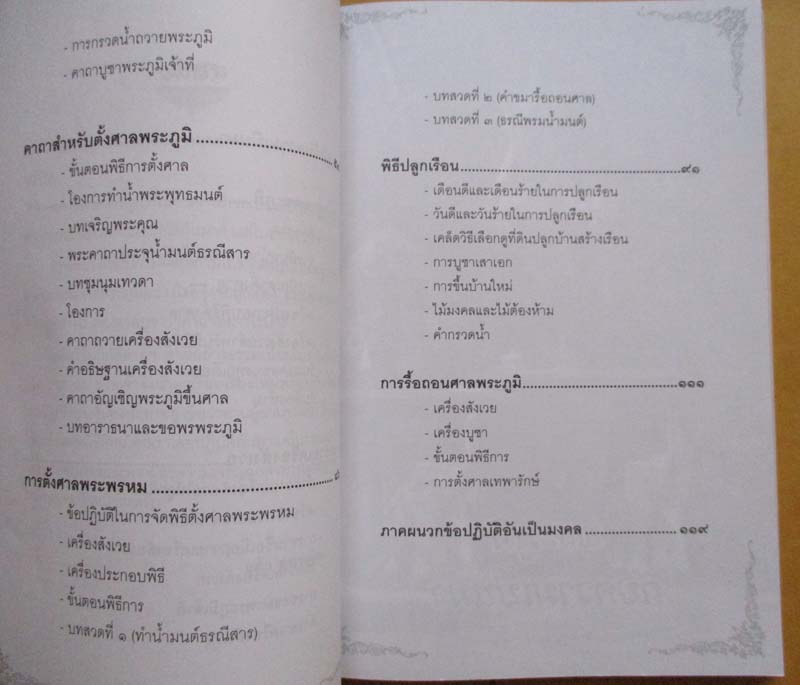 - การกรวดน้ำถวายพระภูมิ
- คาถาบูชาพระภูมิเจ้าที่
คาถาสำหรับตั้งศาลพระภูมิ
- ขั้นตอนพิธีการตั้งศาล
- โองการทำน้ำพระพุทธมนต์
- บทเจริญพระคุณ
- พระคาถาประจุน้ำมนต์ธรณีสาร
- บทชุมนุมเทวดา
- โองการ
- คาถาถวายเครื่องสังเวย
- คำอธิษฐานเครื่องสังเวย
- คาถาอัญเชิญพระภูมิขึ้นศาล
- บทอาราธนาและขอพรพระภูมิ
การตั้งศาลพระพรหม
- ข้อปฏิบัติในการจัดพิธีตั้งศาลพระพรหม
- เครื่องสังเวย
- เครื่องประกอบพิธี
- ขั้นตอนพิธีการ
- บทสวดที่ ๑ (ทำน้ำมนต์ธรณีสาร)
- บทสวดที่ ๒ (คำขมารื้อถอนศาล)
- บทสวดที่ ๓ (ธรณีพรมน้ำมนต์)
พิธีปลูกเรือน ๙๑
- เดือนดีและเดือนร้ายในการปลูกเรือน
- วันดีและวันร้ายในการปลูกเรือน
- เคล็ดวิธีเลือกดูที่ดินปลูกบ้านสร้างเรือน
- การบูชาเสาเอก
- การขึ้นบ้านใหม่
- ไม้มงคลและไม้ต้องห้าม
- คำกรวดน้ำ
การรื้อถอนศาลพระภูมิ ๑๑๑
- เครื่องสังเวย
- เครื่องบูชา
- ขั้นตอนพิธีการ
- การตั้งศาลเทพารักษ์
ภาคผนวกข้อปฏิบัติอันเป็นมงคล ๑๑๙